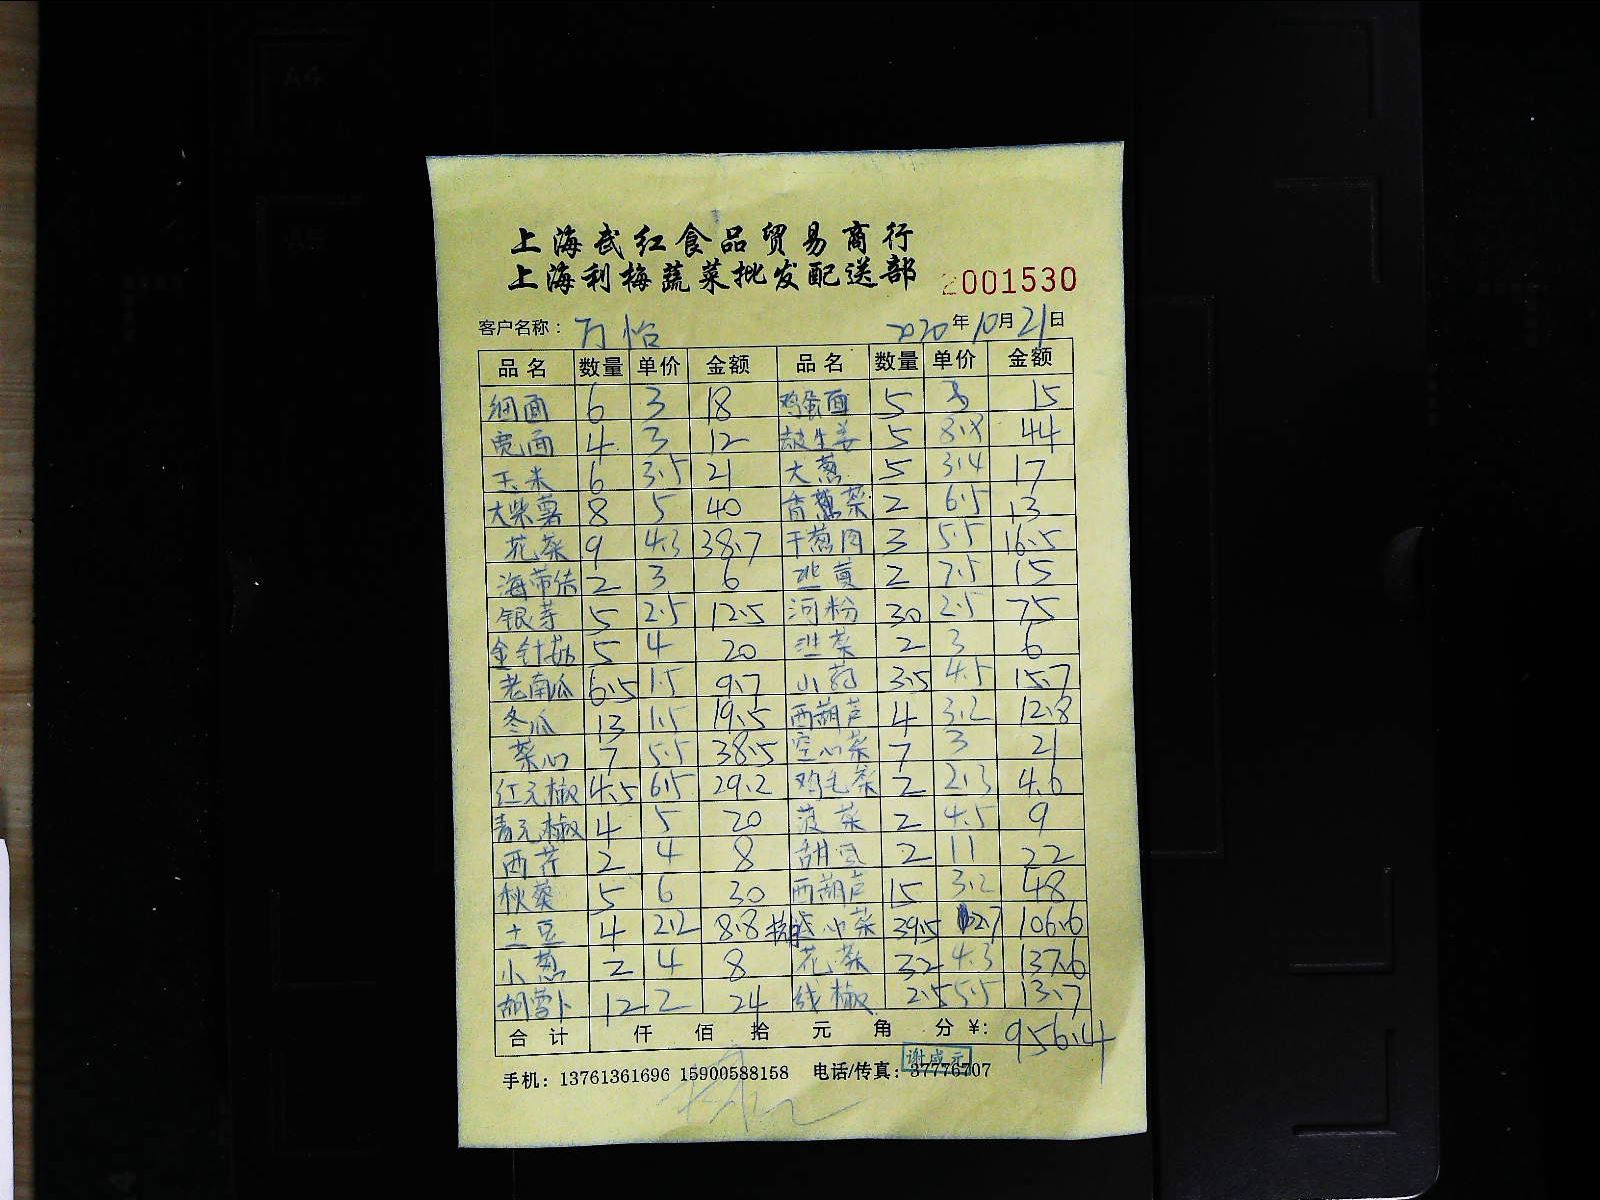 上海武红食品贸易商行
上海利梅蔬菜批发配送部 2001530
客户名称：万怡 2020年10月21日
品名 数量 单价 金额 品名 数量 单价 金额
细面 6 3 18 鸡蛋面 5 3 15
宽面 4 3 12 生姜 5 8.8 44
玉米 6 3.5 21 大葱 5 3.4 17
大紫薯 8 5 40 香葱 2 6.5 13
花菜 9 4.3 38.7 干葱肉 3 5.5 16.5
海带结 2 3 6 韭黄 2 7.5 15
银芽 5 2.5 12.5 河粉 30 2.5 75
金针菇 5 4 20 韭菜 2 3 6
老南瓜 6.5 1.5 9.7 山药 3.5 4.5 15.7
冬瓜 13 1.5 19.5 西葫芦 4 3.2 12.8
菜心 7 5.5 38.5 空心菜 7 3 21
红元椒 4.5 6.5 29.2 鸡毛菜 2 2.3 4.6
青元椒 4 5 20 菠菜 2 4.5 9
西芹 2 4 8 甜豆 2 11 22
秋葵 5 6 30 西葫芦 15 3.2 48
土豆 4 2.2 8.8 菜 39.5 2.7 106.6
小葱 2 4 8 花菜 32 4.3 137.6
胡萝卜 12 2 24 线椒 2.5 5.5 13.7
合计 仟 佰 拾 元 角 分 ¥: 956.4
手机：13761361696 15900588158 电话/传真：37776707
谢盛元